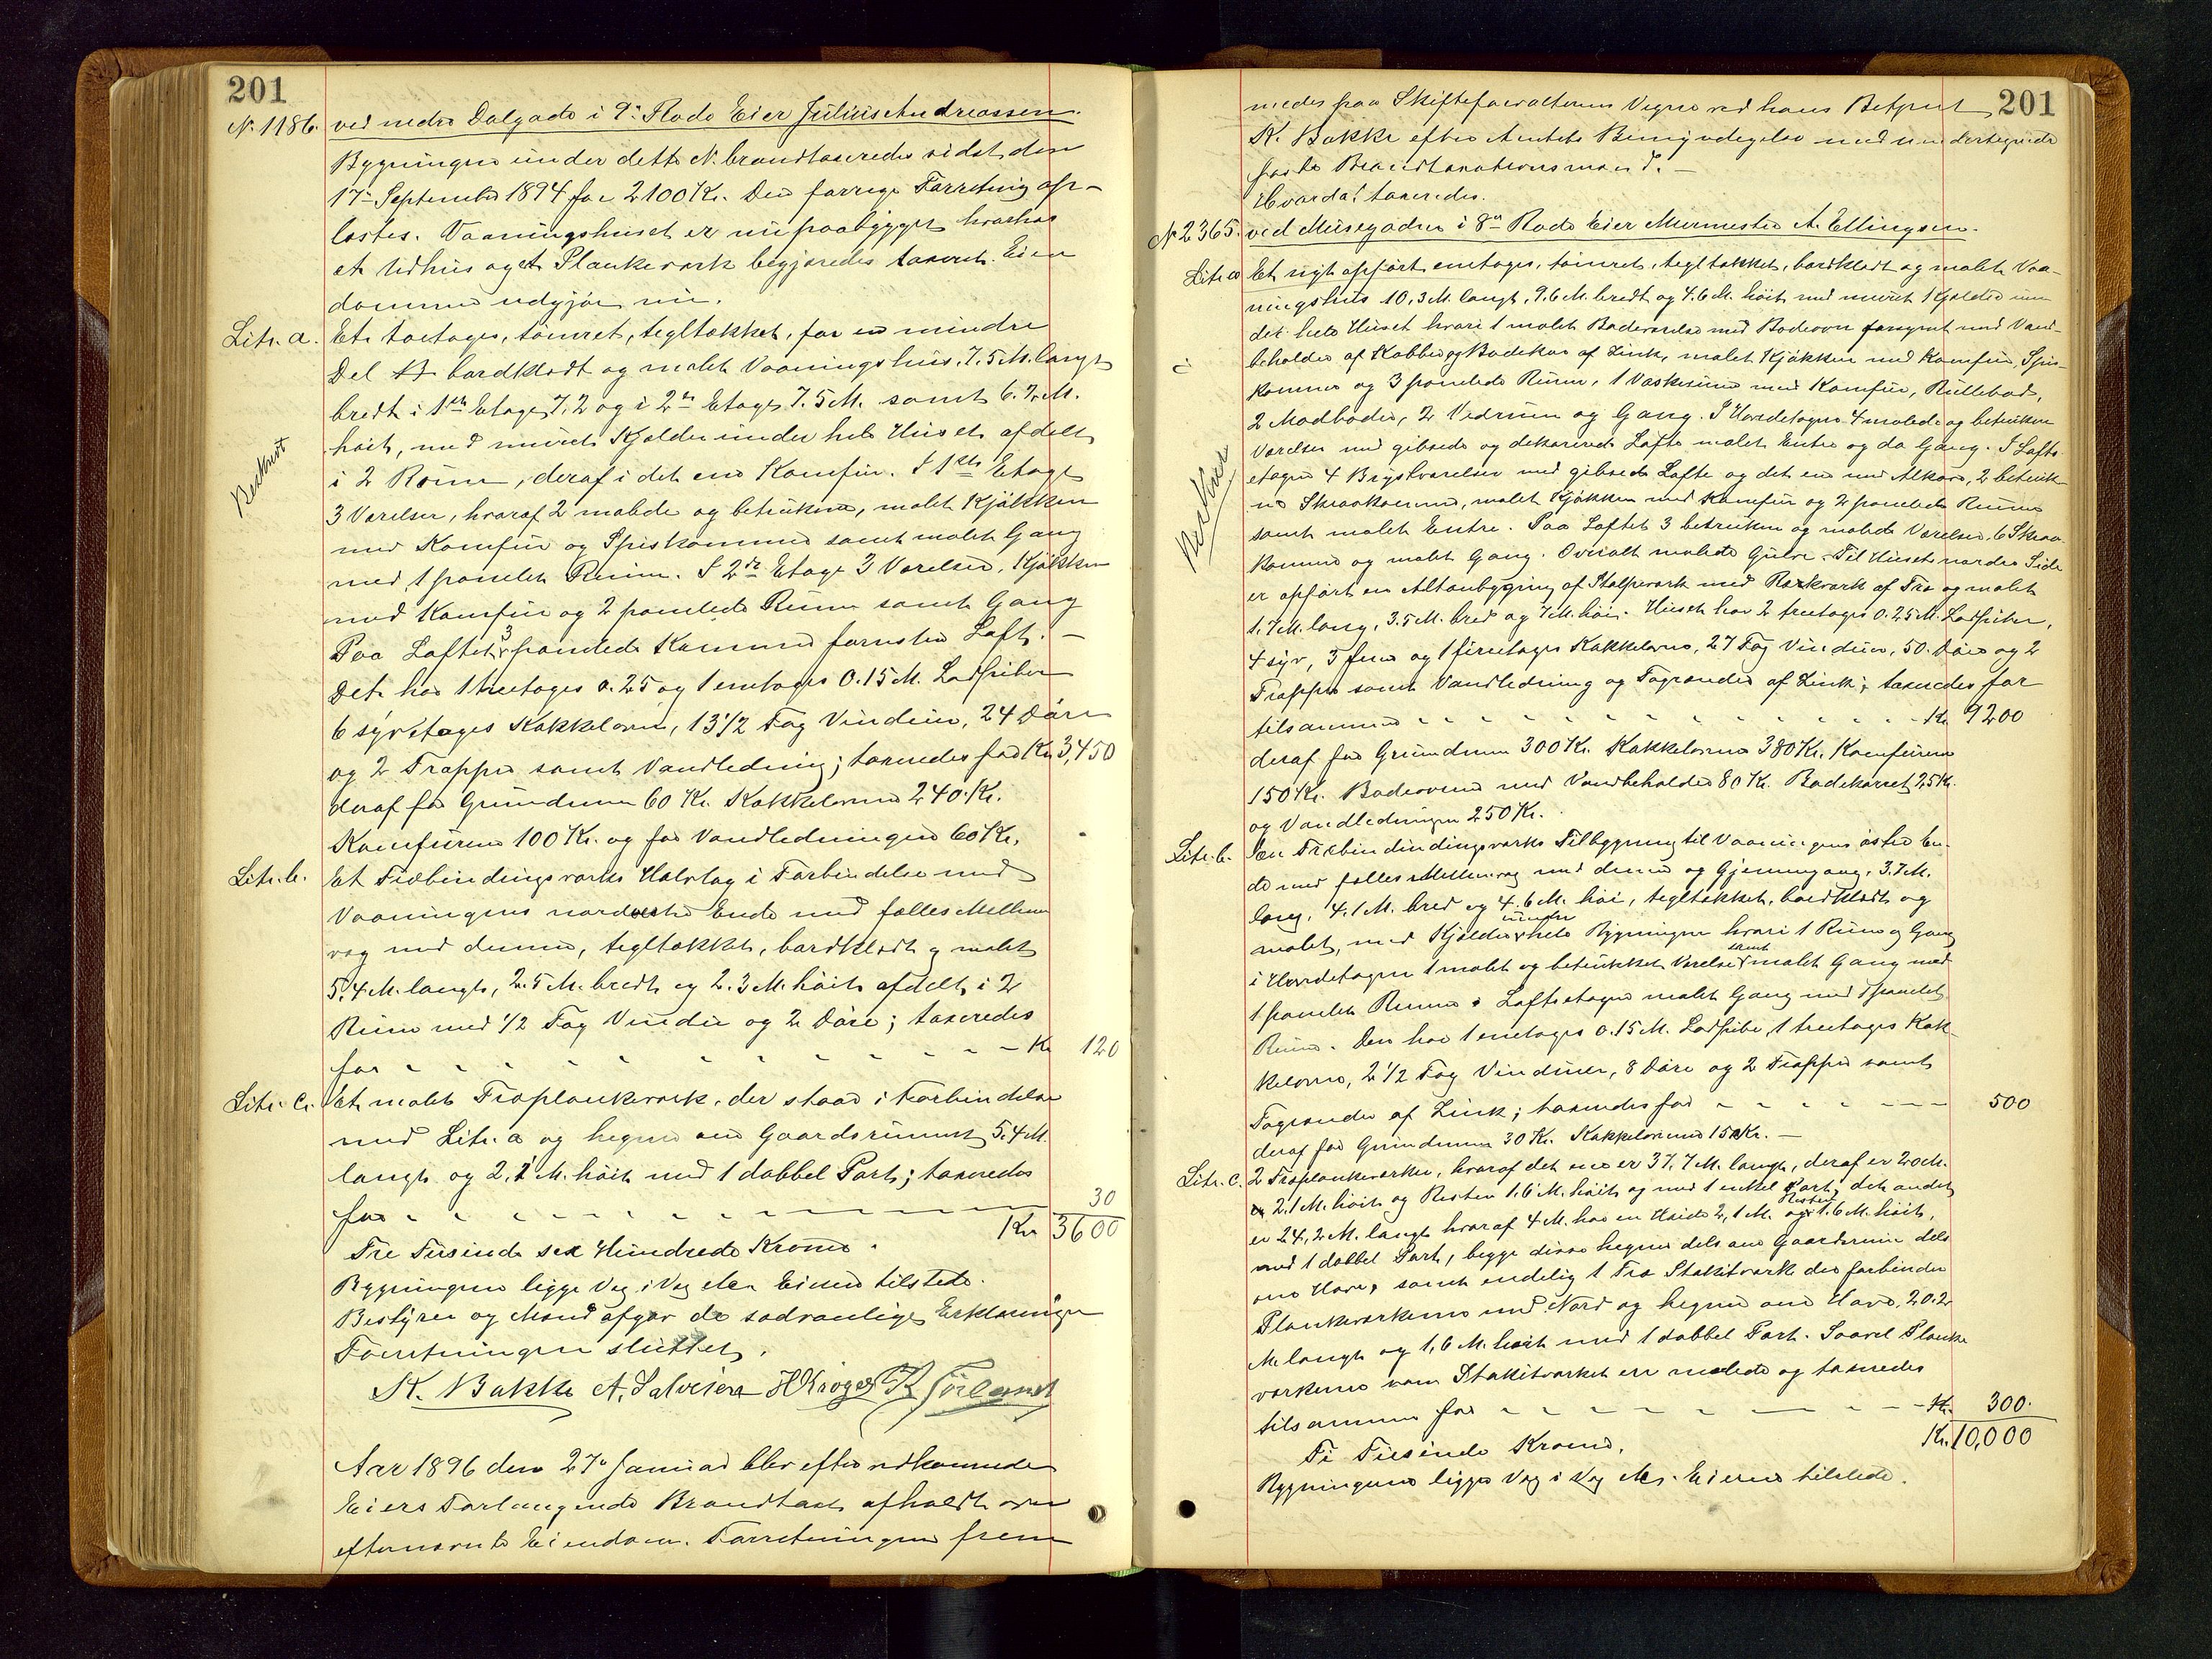 201
N. 1186. ved nedre Dalgade i 9de Rode Eier Julius Andreassen.
Bygningerne under dette N. brandtaxeredes sidst den
17de September 1894 for 2100 Kr. Den forrige Forretning op-
læstes. Vaaningshuset er nu paabygget hvorhos
et Udhus og et Plankeværk begjæredes taxeret. Eien
dommen udgjør nu.
Litr. a. Et toetages, tømret, tegltækket, for en mindre
Del bordklædt og malet Vaaningshus, 7.5 M. langt
bredt i 1ste Etage 7,2 og i 2den Etage 7.5 M. samt 6.7 M.
høit, med muret Kjælder under hele Huset afdelt
i 2 Rum, deraf i det ene Komfur. I 1ste Etage
3 Værelser, hvoraf 2 malede og betrukne, malet Kjøkken
med Komfur og Spiskammer samt malet Gang
med 1 panelet Rum. I 2den Etage 3 Værelser, Kjøkken
med Komfur og 2 panelede Rum samt Gang
Paa Loftet 3 panelede Kammer foruden Loft. –
Det har 1 treetages 0.25 og 1 enetages 0.15 M. Ladpiber
6 syvetages Kakkelovne, 13 1/2 Fag Vinduer, 24 Døre
og 2 Trapper samt Vandledning; taxeredes for Kr. 3,450
deraf for Grundmur 60 Kr. Kakkelovnene 240 Kr.
Komfurene 100 Kr. og for Vandledningen 60 Kr.
Litr. b. Et Træbindingsværks Halvtag i Forbindelse med
Vaaningens nordvestre Ende med fælles Mellem
væg med denne, tegltækket, bordklædt og malet
5.4 M. langt, 2.5 M. bredt og 2.3 M. høit afdelt i 2
Rum med 1/2 Fag Vindu og 2 Døre; taxeredes
for - - - - - - - - - - Kr. 120
Litr. c. Et malet Træplankeværk, der staar i Forbindelse
med Litr. a og hegner om Gaardsrummet 5.4 M.
langt og 2,1 M. høit med 1 dobbel Port; taxeredes
for - - - - - - - - - - 30
Kr. 3600
Tre Tusinde sex Hundrede Kroner.
Bygningerne ligge Væg i Væg. Eieren tilstede.
Bestyrer og Mænd afgav de sædvanlige Erklæringer
Forretningen sluttet.
K. Bakke A. Salvesen H Krøger K Førland
Aar 1896 den 27de Januar blev efter vedkommende
Eiers Forlangende Brandtaxt afholdt over
efternævnte Eiendom. Forretningen frem
201
medes paa Skifteforvalterens Vegne ved hans Betjent
K. Bakke efter Amtets Bemyndigelse med undertegnede
faste Brandtaxationsmænd. –
Hvorda! taxeredes.
N 2365. ved Musegaden i 8de Rode Eier Murmester A. Ellingsen.
Litr. a Et nyt opført enetages, tømret, tegltækket, bordklædt og malet Vaa-
ningshus 10,3 M. langt, 9.6 M. bredt og 4.6 M. høit med muret Kjælder un
der hele Huset hvori 1 malet Badeværelse med Badeovn forsynet med Vand-
beholder af Kobber og Badekar af Zink, malet Kjøkken med Komfur, Spis-
kammer og 3 panelede Rum, 1 Vaskerum med Komfur, Rullebod,
2 Madboder, 2 Vedrum og Gang. I Hovedetagen 4 malede og betrukne
Værelser med gibsede og dekorerede Lofte malet Entre og do Gang. I Lofts
etagen 4 Brystværelser med gibsede Lofte og det ene med Alkove, 2 betruk-
ne Skraakamre, malet Kjøkken med Komfur og 2 panelede Rum
samt malet Entre. Paa Loftet 3 betrukne og malede Værelser, 6 Skraa-
kammer og malet Gang. Overalt malede Gulve. Til Husets nordre Side
er opført en Altanbygning af Stolpeværk med Rækværk af Træ og malet
1.7 M. lang, 3.5 M. bred og 7 M. høi. Huset har 2 treetages 0.25 M. Ladpiber,
4 syv, 3 fem og 1 fireetages Kakkelovne, 27 Fag Vinduer, 50 Døre og 2
Trapper samt Vandledning og Tagrender af Zink; taxeredes for
tilsammen - - - - - - - - - - Kr. 9200
deraf for Grundmur 300 Kr. Kakkelovnene 380 Kr. Komfurene
150 Kr. Badeovnen med Vandbeholder 80 Kr. Badekarret 25 Kr.
og Vandledningen 250 Kr.
Litr. b. En Træbindingsværks Tilbygning til Vaaningens østre En-
de med fælles Mellemvæg med denne og Gjennemgang, 3.7 M.
lang, 4.1 M. bred og 4.6 M. høi, tegltækket, bordklædt og
malet, med Kjælder under hele Bygningen hvori 1 Rum og Gang
i Hovedetagen 1 malet og betrukket Værelse samt malet Gang med
1 panelet Rum. I Loftsetagen malet Gang med 1 panelet
Rum. Den har 1 enetages 0.15 M. Ladpibe, 1 treetages Kak-
kelovn, 2 1/2 Fag Vinduer, 8 Døre og 2 Trapper samt
Tagrender af Zink; taxeredes for - - - - - - 500
deraf for Grundmur 30 Kr. Kakkelovnene 15 Kr. –
Litr. c. 2 Træplankeværker, hvoraf det ene er 37,7 M. langt, deraf er 20 M.
2.1 M. høit og Resten 1.6 M. høit og med 1 enkel Port, det andet
er 24,2 M. langt hvoraf 4 M. har en Høide 2,1 M. og Resten 1.6 M. høit,
med 1 dobbel Port, begge disse hegner dels om Gaardsrum dels
om Have, samt endelig 1 Træ Stakitværk der forbinder
Plankeværkerne mod Nord og hegner om Have, 20.2
M. langt og 1,6 M. høit med 1 dobbel Port. Saavel Planke
værkerne som Stakitværket ere malede og taxeredes
tilsammen for - - - - - - - - Kr. 300.
Kr. 10,000
Ti Tusinde Kroner.
Bygningerne ligge Væg i Væg. Eieren tilstede.